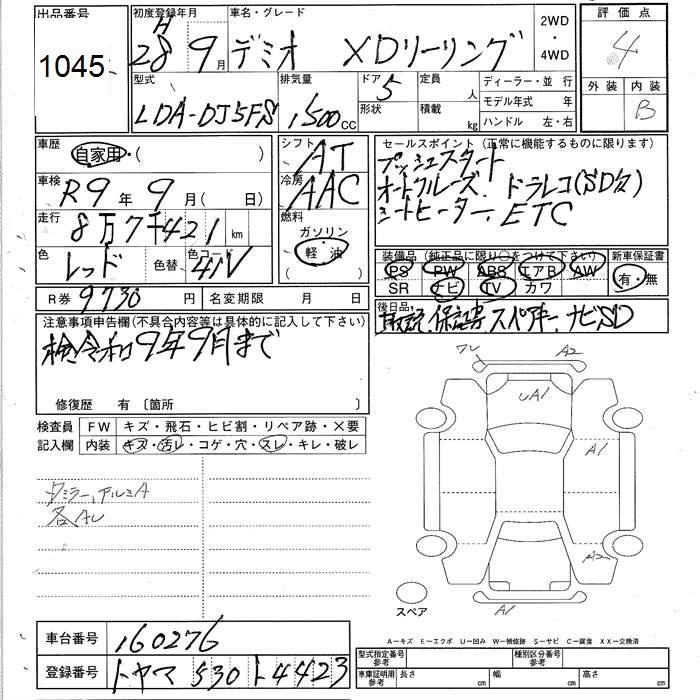 出品番号 初度登録年月 車名・グレード 2WD・4WD 評価点
1045 H28 9月 デミオ XDツーリング 4
型式 排気量 ドア 定員 ディーラー・並行 外装 内装
LDA-DJ5FS 1,500cc 5 人 モデル年式 年 B
形状 積載 kg ハンドル 左・右
車歴 シフト セールスポイント(正常に機能するものに限ります)
自家用・( ) AT プッシュスタート
車検 冷房 オートクルーズ、ドラレコ(SD欠)
R9年 9月( 日) AAC シートヒーター、ETC
走行 燃料
8万7千421km ガソリン・軽油
色 色替 色コード 装備品(純正品に限り○をつけて下さい) 新車保証書
レッド 41V PS PW ABS エアB AW 有・無
SR ナビ TV カワ
R券 9730円 名変期限 月 日 後日品
注意事項申告欄(不具合内容等は具体的に記入して下さい) 取説、保証書、スペアキー、ナビSD
検令和9年9月まで
修復歴 有 〔箇所 〕
検査員記入欄 FW キズ・飛石・ヒビ割・リペア跡・X要
内装 キズ・汚レ・コゲ・穴・スレ・キレ・破レ
ワレ A2
UA1
A1
ミラー、アルミA
各AU
A2
スペア A1
A-キズ E-エクボ U-凹み W-補修跡 S-サビ C-腐食 XX-交換済
車台番号 160276 型式指定番号 参考 種別区分番号 参考
登録番号 トヤマ 530 ト4423 車庫証明用 参考 長さ cm 幅 cm 高さ cm